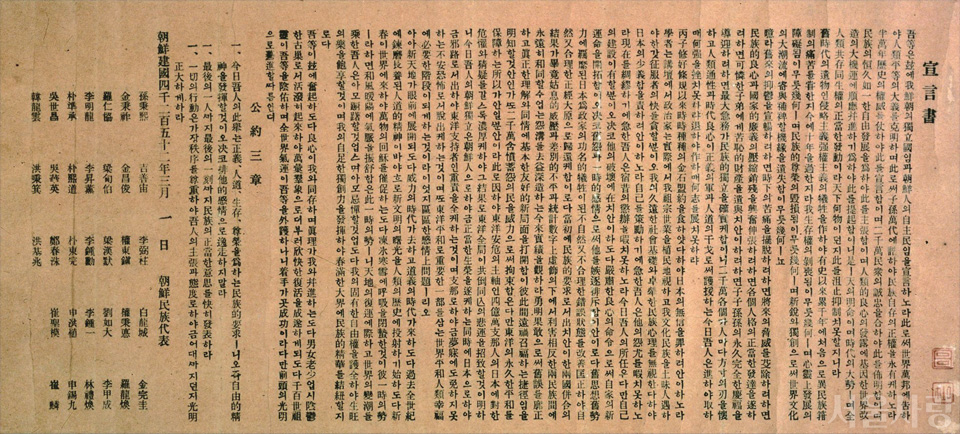 宣言書
吾等은玆에我鮮朝의獨立國임과朝鮮人의自主民임을宣言하노라此로써世界萬邦에告하
야人類平等의大義를克明하며此로써子孫萬代에誥하야民族自存의正權을永有케하노라
半萬年歷史의權威를仗하야此를宣言함이며二千萬民衆의誠忠을合하야此를佈明함이며
民族의恒久如一한自由發展을爲하야此를主張함이며人類的良心의發露에基因한世界改
造의大機運에順應幷進하기爲하야此를提起함이니是ㅣ天의明命이며時代의大勢ㅣ며全
人類共存同生權의正當한發動이라天下何物이던지此를沮止抑制치못할지니라
舊時代의遺物인侵略主義强權主義의犧牲을作하야有史以來累千年에처음으로異民族箝
制의痛苦를嘗한지今에十年을過한지라我生存權의剝喪됨이무릇幾何ㅣ며心靈上發展의
障礙됨이무릇幾何ㅣ며民族的尊榮의毁損됨이무릇幾何ㅣ며新銳와獨創으로써世界文化
의大潮流에寄與補裨할機緣을遺失함이무릇幾何ㅣ뇨
噫라舊來의抑鬱을宣暢하려하면時下의苦痛을擺脫하려하면將來의脅威를芟除하려하면
民族的良心과國家的廉義의壓縮銷殘을興奮伸張하려하면各個人格의正當한發達을遂하
려하면可憐한子弟에게苦恥的財産을遺與치안이하려하면子子孫孫의永久完全한慶福을
導迎하려하면最大急務가民族的獨立을確實케함이니二千萬各個가人마다方寸의刃을懷
하고人類通性과時代良心이正義의軍과人道의干戈로써護援하는今日吾人은進하야取하
매何强을挫치못하랴退하야作하매何志를展치못하랴
丙子修好條規以來時時種種의金石盟約을食하얏다하야日本의無信을罪하려안이하노라
學者는講壇에서政治家는實際에서我祖宗世業을植民地視하고我文化民族을土昧人遇하
야한갓征服者의快를貪할뿐이오我의久遠한社會基礎와卓犖한民族心理를無視한다하야
日本의少義함을責하려안이하노라自己를策勵하기에急한吾人은他의怨尤를暇치못하노
라現在를綢繆하기에急한吾人은宿昔의懲辨을暇치못하노라今日吾人의所任은다만自己
의建設이有할뿐이오決코他의破壞에在치안이하도다嚴肅한良心의命令으로써自家의新
運命을開拓함이오決코舊怨과一時的感情으로써他를嫉逐排斥함이안이로다舊思想舊勢
力에羈縻된日本爲政家의功名的犧牲이된不自然又不合理한錯誤狀態를改善匡正하야自
然又合理한正經大原으로歸還케함이로다當初에民族的要求로서出치안이한兩國併合의
結果가畢竟姑息的威壓과差別的不平과統計數字上虛飾의下에서利害相反한兩民族間에
永遠히和同할수업는怨溝를去益深造하는今來實績을觀하라勇明果敢으로써舊誤를廓正
하고眞正한理解와同情에基本한友好的新局面을打開함이彼此間遠禍召福하는捷徑임을
明知할것안인가또二千萬含憤蓄怨의民을威力으로써拘束함은다만東洋의永久한平和를
保障하는所以가안일뿐안이라此로因하야東洋安危의主軸인四億萬支那人의日本에對한
危懼와猜疑를갈스록濃厚케하야그結果로東洋全局이共倒同亡의悲運을招致할것이明하
니今日吾人의朝鮮獨立은朝鮮人으로하야금正當한生榮을遂케하는同時에日本으로하야
금邪路로서出하야東洋支持者인重責을全케하는것이며支那로하야금夢寐에도免하지못
하는不安恐怖로서脫出케하는것이며또東洋平和로重要한一部를삼는世界平和人類幸福
에必要한階段이되게하는것이라이엇지區區한感情上問題ㅣ리오
아아新天地가眼前에展開되도다威力의時代가去하고道義의時代가來하도다過去全世紀
에鍊磨長養된人道的精神이바야흐로新文明의曙光을人類의歷史에投射하기始하도다新
春이世界에來하야萬物의回穌를催促하는도다凍氷寒雪에呼吸을閉蟄한것이彼一時의勢
ㅣ라하면和風暖陽에氣脈을振舒함은此一時의勢ㅣ니天地의復運에際하고世界의變潮를
乘한吾人은아모躊躇할것업스며아모忌憚할것업도다我의固有한自由權을護全하야生旺
의樂을飽享할것이며我의自足한獨創力을發揮하야春滿한大界에民族的精華를結紐할지
로다
吾等이玆에奮起하도다良心이我와同存하며眞理가我와幷進하는도다男女老少업시陰鬱
한古巢로서活潑히起來하야萬彙羣象으로더부러欣快한復活을成遂하게되도다千百世祖
靈이吾等을陰佑하며全世界氣運이吾等을外護하나니着手가곳成功이라다만前頭의光明
으로驀進할따름인뎌
公約三章
一、今日吾人의此擧는正義、人道、生存、尊榮을爲하는民族的要求ㅣ니오즉自由的精
神을發揮할것이오決코排他的感情으로逸走하지말라
一、最後의一人까지最後의一刻까지民族의正當한意思를快히發表하라
一、一切의行動은가장秩序를尊重하야吾人의主張과態度로하야금어대까지던지光明
正大하게하라
朝鮮建國四千二百五十二年三月一日 朝鮮民族代表
孫秉熙 吉善宙 李弼柱 白龍城 金完圭
金秉祚 金昌俊 權東鎭 權秉悳 羅龍煥
羅仁協 梁甸伯 梁漢默 劉如大 李甲成
李明龍 李昇薰 李鍾勳 李鍾一 林禮煥
朴準承 朴熙道 朴東完 申洪植 申錫九
吳世昌 吳華英 鄭春洙 崔聖模 崔麟
韓龍雲 洪秉箕 洪基兆
서울사랑